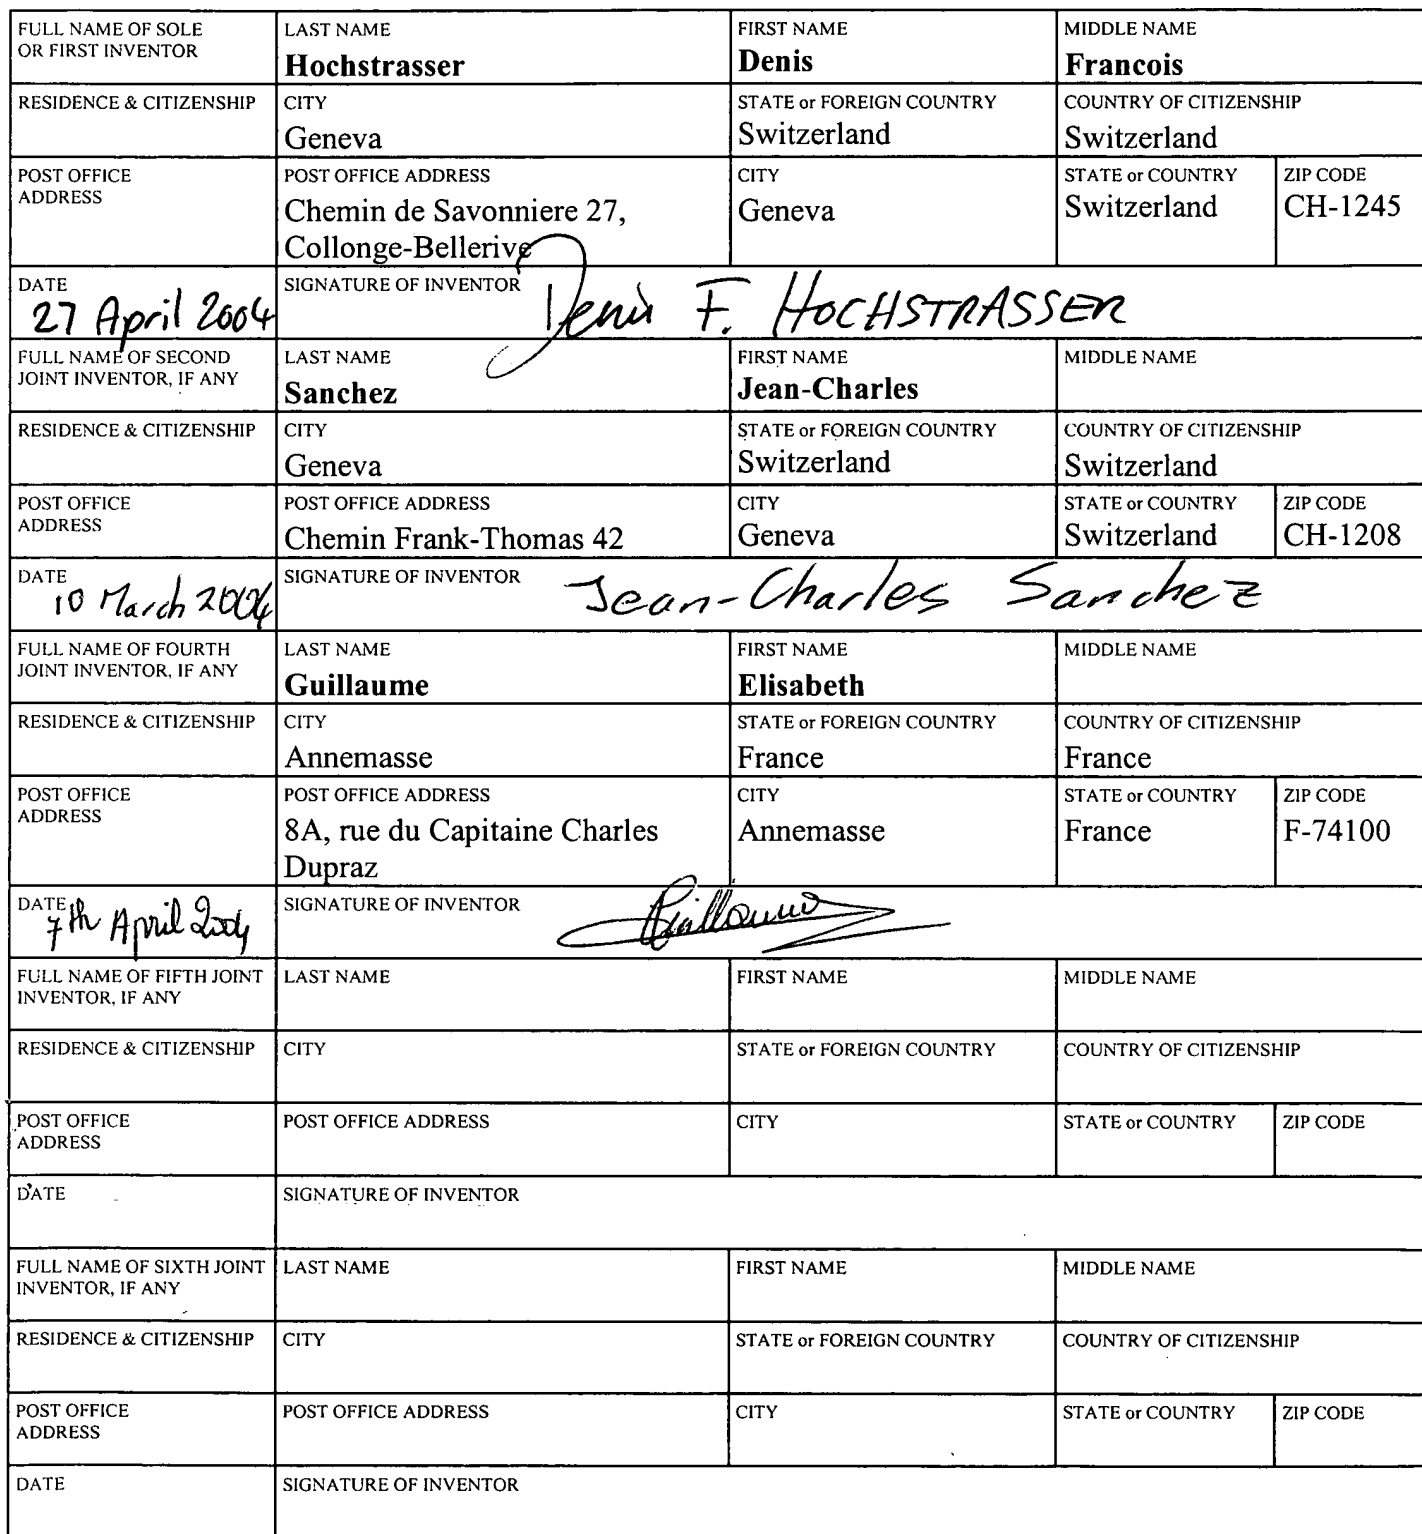 FULL NAME OF SOLE
OR FIRST INVENTOR
LAST NAME
Hochstrasser
FIRST NAME
Denis
MIDDLE NAME
Francois
RESIDENCE & CITIZENSHIP
CITY
Geneva
STATE or FOREIGN COUNTRY
Switzerland
COUNTRY OF CITIZENSHIP
Switzerland
POST OFFICE
ADDRESS
POST OFFICE ADDRESS
Chemin de Savonniere 27,
Collonge-Bellerive
CITY
Geneva
STATE or COUNTRY
Switzerland
ZIP CODE
CH-1245
DATE
27 April 2004
SIGNATURE OF INVENTOR
Denis F. HOCHSTRASSER
FULL NAME OF SECOND
JOINT INVENTOR, IF ANY
LAST NAME
Sanchez
FIRST NAME
Jean-Charles
MIDDLE NAME
RESIDENCE & CITIZENSHIP
CITY
Geneva
STATE or FOREIGN COUNTRY
Switzerland
COUNTRY OF CITIZENSHIP
Switzerland
POST OFFICE
ADDRESS
POST OFFICE ADDRESS
Chemin Frank-Thomas 42
CITY
Geneva
STATE or COUNTRY
Switzerland
ZIP CODE
CH-1208
DATE
10 March 2004
SIGNATURE OF INVENTOR
Jean-Charles Sanchez
FULL NAME OF FOURTH
JOINT INVENTOR, IF ANY
LAST NAME
Guillaume
FIRST NAME
Elisabeth
MIDDLE NAME
RESIDENCE & CITIZENSHIP
CITY
Annemasse
STATE or FOREIGN COUNTRY
France
COUNTRY OF CITIZENSHIP
France
POST OFFICE
ADDRESS
POST OFFICE ADDRESS
8A, rue du Capitaine Charles
Dupraz
CITY
Annemasse
STATE or COUNTRY
France
ZIP CODE
F-74100
DATE
7th April 2004
SIGNATURE OF INVENTOR
Guillaume
FULL NAME OF FIFTH JOINT
INVENTOR, IF ANY
LAST NAME
FIRST NAME
MIDDLE NAME
RESIDENCE & CITIZENSHIP
CITY
STATE or FOREIGN COUNTRY
COUNTRY OF CITIZENSHIP
POST OFFICE
ADDRESS
POST OFFICE ADDRESS
CITY
STATE or COUNTRY
ZIP CODE
DATE
SIGNATURE OF INVENTOR
FULL NAME OF SIXTH JOINT
INVENTOR, IF ANY
LAST NAME
FIRST NAME
MIDDLE NAME
RESIDENCE & CITIZENSHIP
CITY
STATE or FOREIGN COUNTRY
COUNTRY OF CITIZENSHIP
POST OFFICE
ADDRESS
POST OFFICE ADDRESS
CITY
STATE or COUNTRY
ZIP CODE
DATE
SIGNATURE OF INVENTOR